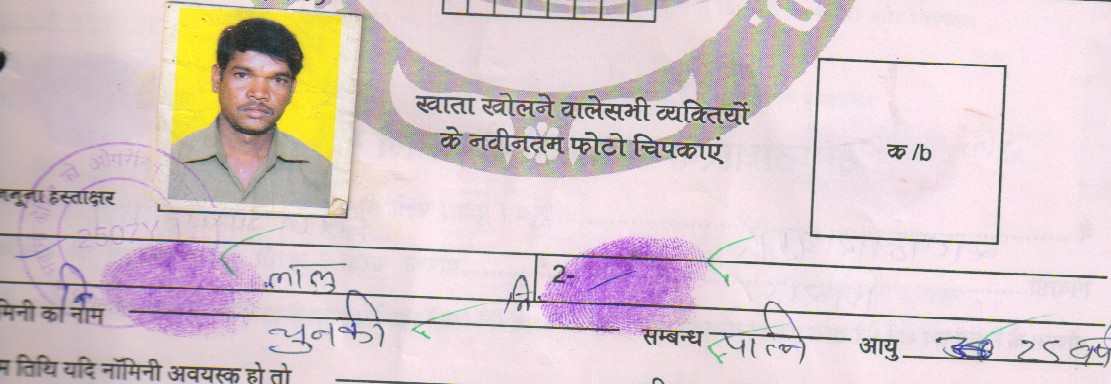 खाता खोलने वालेसभी व्यक्तियों
के नवीनतम फोटो चिपकाएं
क/b
नमूना हस्ताक्षर
2507
नि लालु नि 2-
मिनी का नाम चुनकी सम्बन्ध पत्नि आयु 25 वर्ष
म तिथि यदि नॉमिनी अवयस्क हो तो